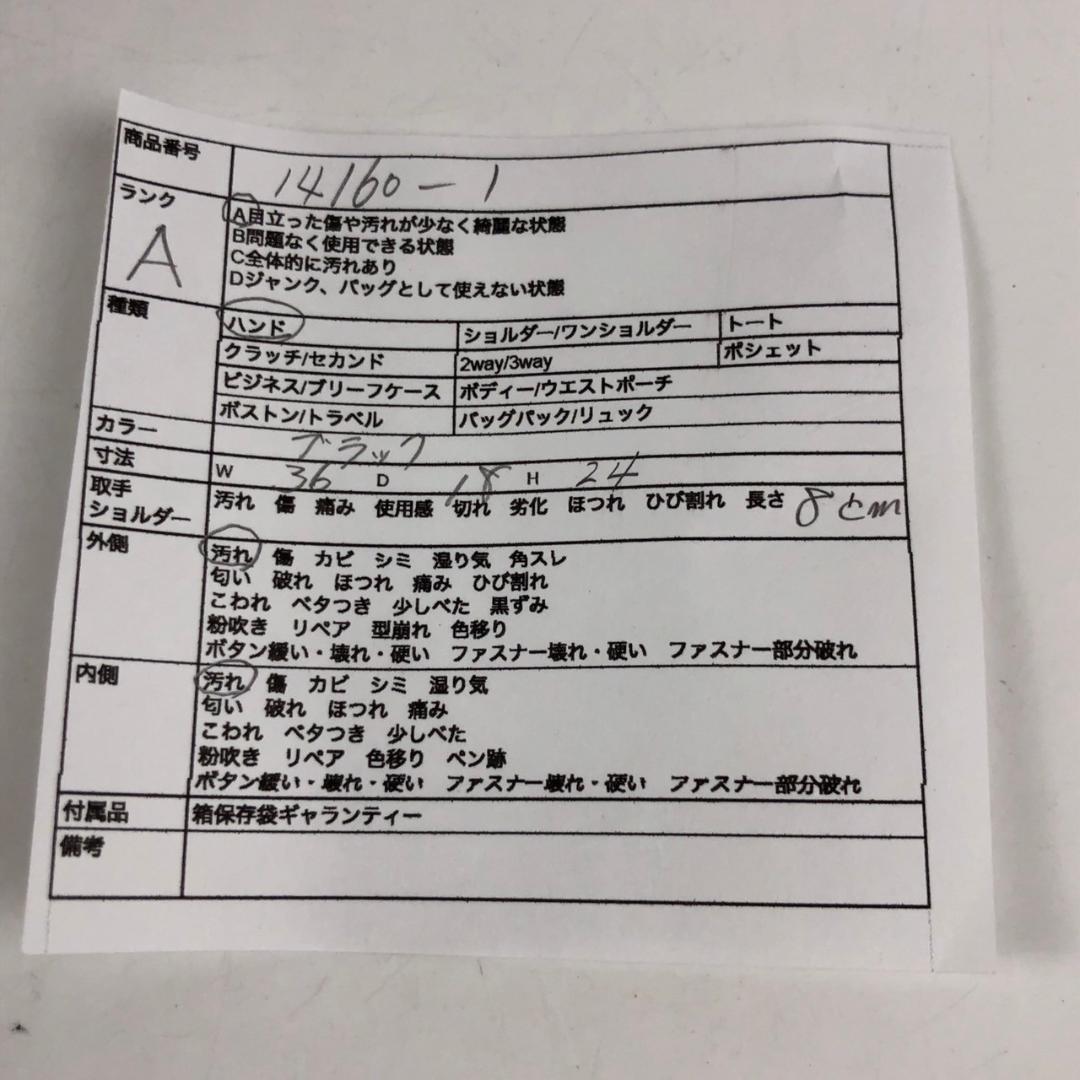 商品番号 14160-1
ランク A
A目立った傷や汚れが少なく綺麗な状態
B問題なく使用できる状態
C全体的に汚れあり
Dジャンク、バッグとして使えない状態
種類 ハンド ショルダー/ワンショルダー トート
クラッチ/セカンド 2way/3way ポシェット
ビジネス/ブリーフケース ボディー/ウエストポーチ
ボストン/トラベル バッグパック/リュック
カラー ブラック
寸法 W 36 D 18 H 24
取手
ショルダー
汚れ 傷 痛み 使用感 切れ 劣化 ほつれ ひび割れ 長さ 8cm
外側 汚れ 傷 カビ シミ 湿り気 角スレ
匂い 破れ ほつれ 痛み ひび割れ
こわれ ベタつき 少しべた 黒ずみ
粉吹き リペア 型崩れ 色移り
ボタン緩い・壊れ・硬い ファスナー壊れ・硬い ファスナー部分破れ
内側 汚れ 傷 カビ シミ 湿り気
匂い 破れ ほつれ 痛み
こわれ ベタつき 少しべた
粉吹き リペア 色移り ペン跡
ボタン緩い・壊れ・硬い ファスナー壊れ・硬い ファスナー部分破れ
付属品 箱保存袋ギャランティー
備考